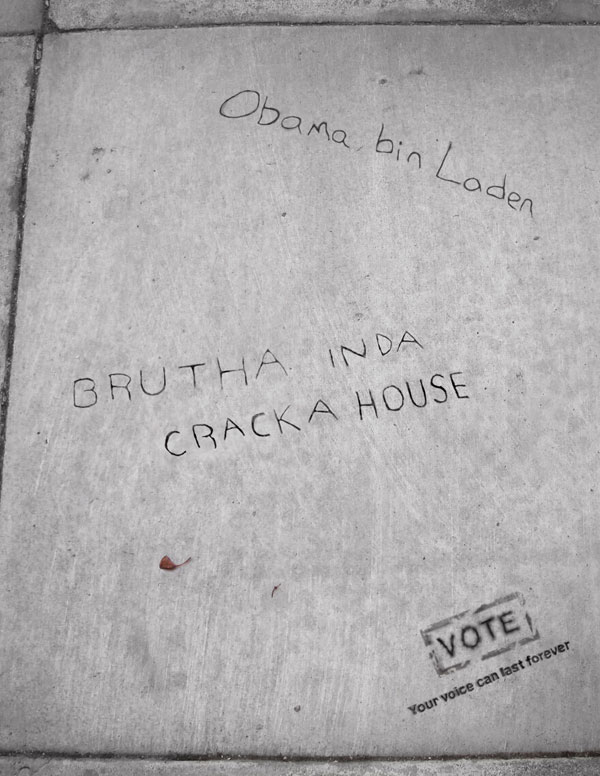 Obama bin Laden
BRUTHA INDA
CRACKA HOUSE
VOTE
Your voice can last forever